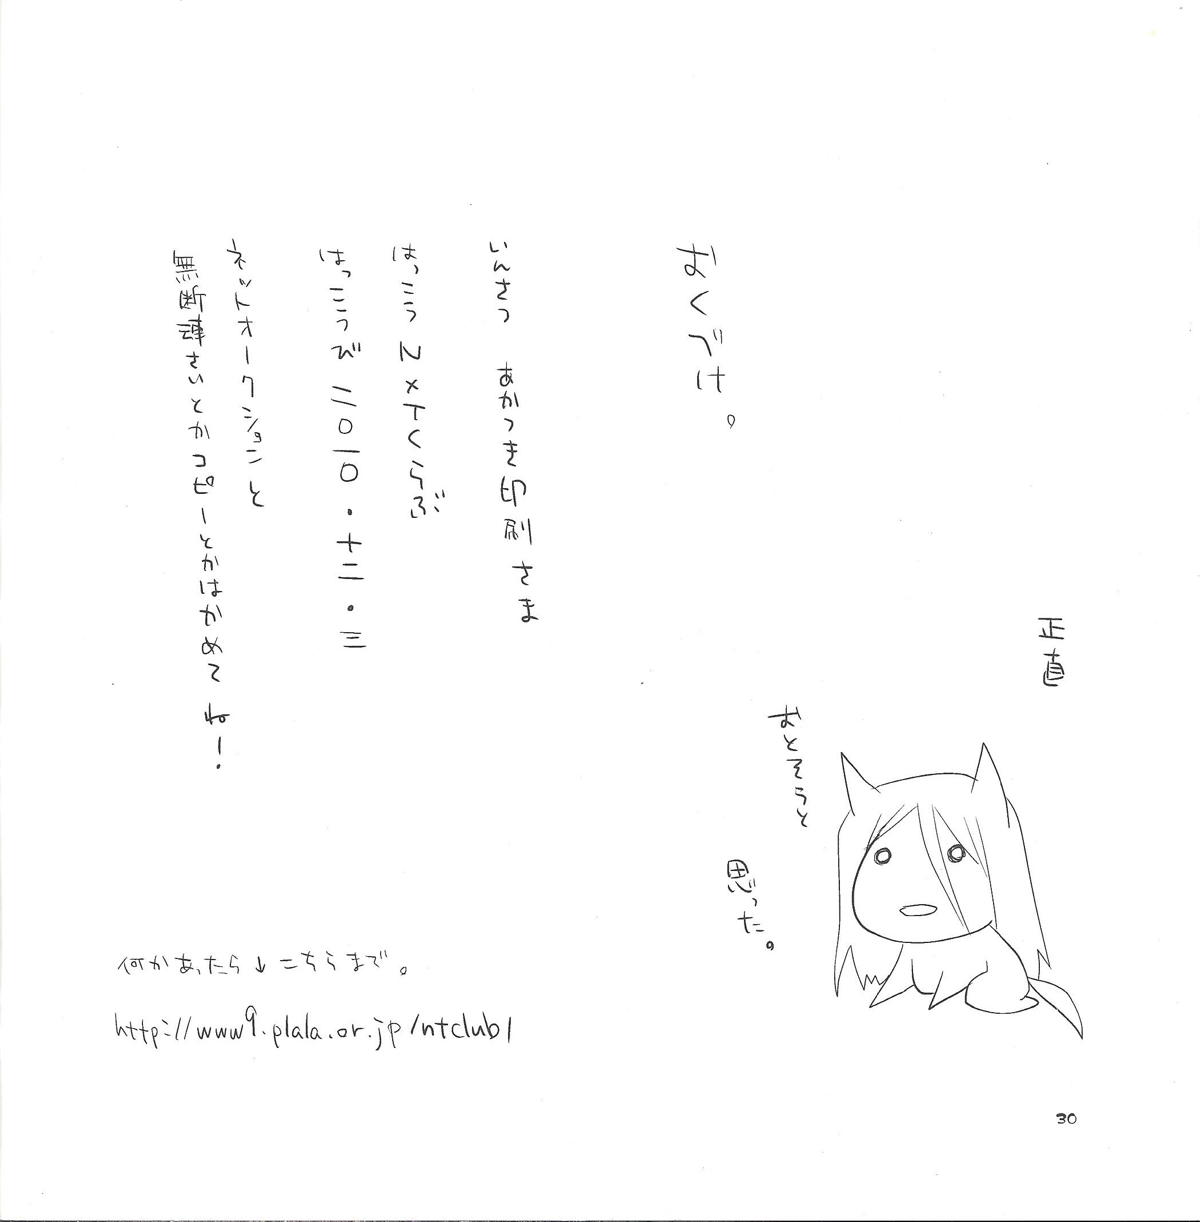 正直
おとそうと
思った。
おくづけ。
いんさつ あかつき印刷さま
はっこう N×Tくらぶ
はっこうび 二〇一〇・十二・三
ネットオークションと
無断さいとかコピーとかはかめてね!
何かあったら↓こちらまで。
http://www9.plala.or.jp/ntclub/
30